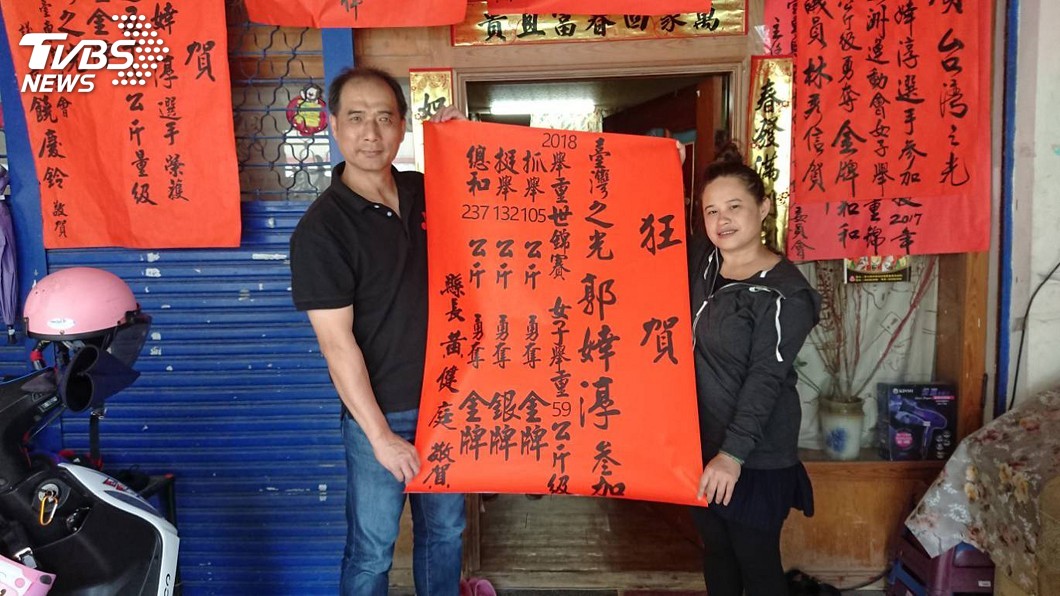 TVBS
NEWS
賀
婞淳選手榮獲
公斤量級
之光
金
會
饒慶鈴 敬賀
萬家回春富且貴
如
春發滿
狂賀
臺灣之光 郭婞淳 參加
2018舉重世錦賽 女子舉重59公斤級
抓舉105公斤 勇奪金牌
挺舉132公斤 勇奪銀牌
總和237公斤 勇奪金牌
縣長 黃健庭 敬賀
賀
台灣之光
婞淳選手參加2017年
洲運動會女子舉重錦
公斤級勇奪金牌和
議員林彥信賀
委員會